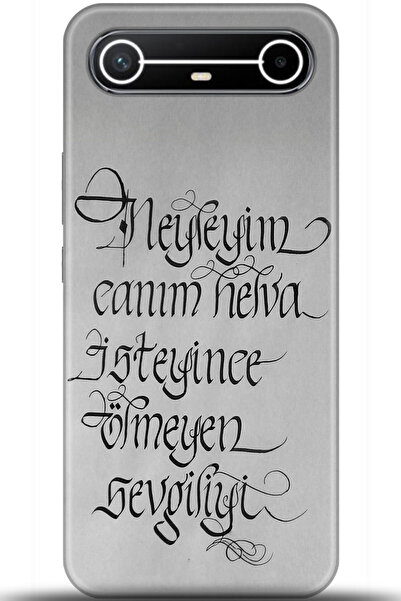 Neyleyim
canım helva
isteyince
ölmeyen
sevgiliyi